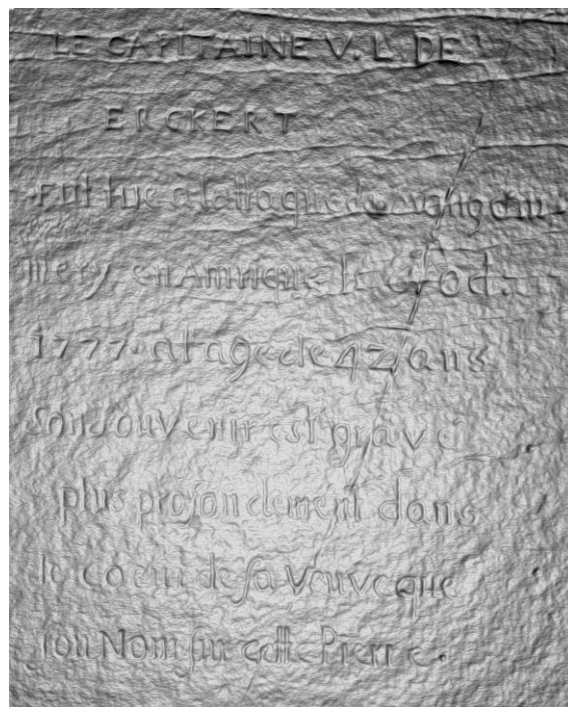 LE CAPITAINE V. L. DE
ERCKERT
Fut tué a lattaque de mongom
mery en Amrique le 6 oct.
1777. a l'age de 42 ans
son souvenir est gravé
plus profondement dans
le coeur de sa Veuve que
son Nom sur cette Pierre.